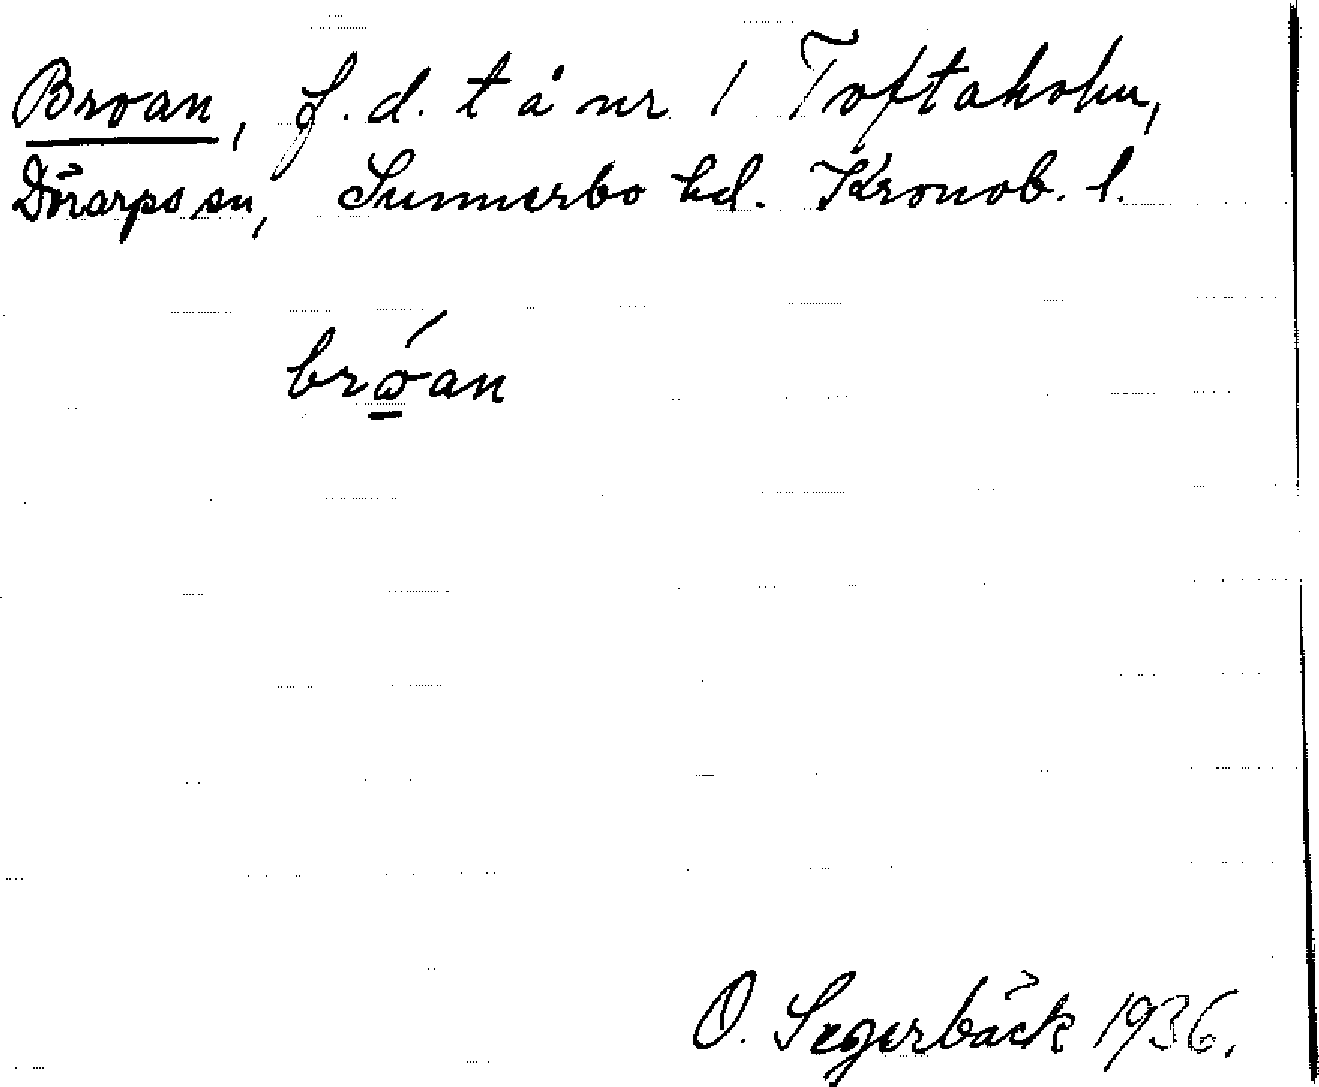 Broan, f.d. t å nr 1 Toftaholm,
Dörarps sn, Sunnerbo hd. Kronob. l.
bróan
O. Segerbäck 1936.